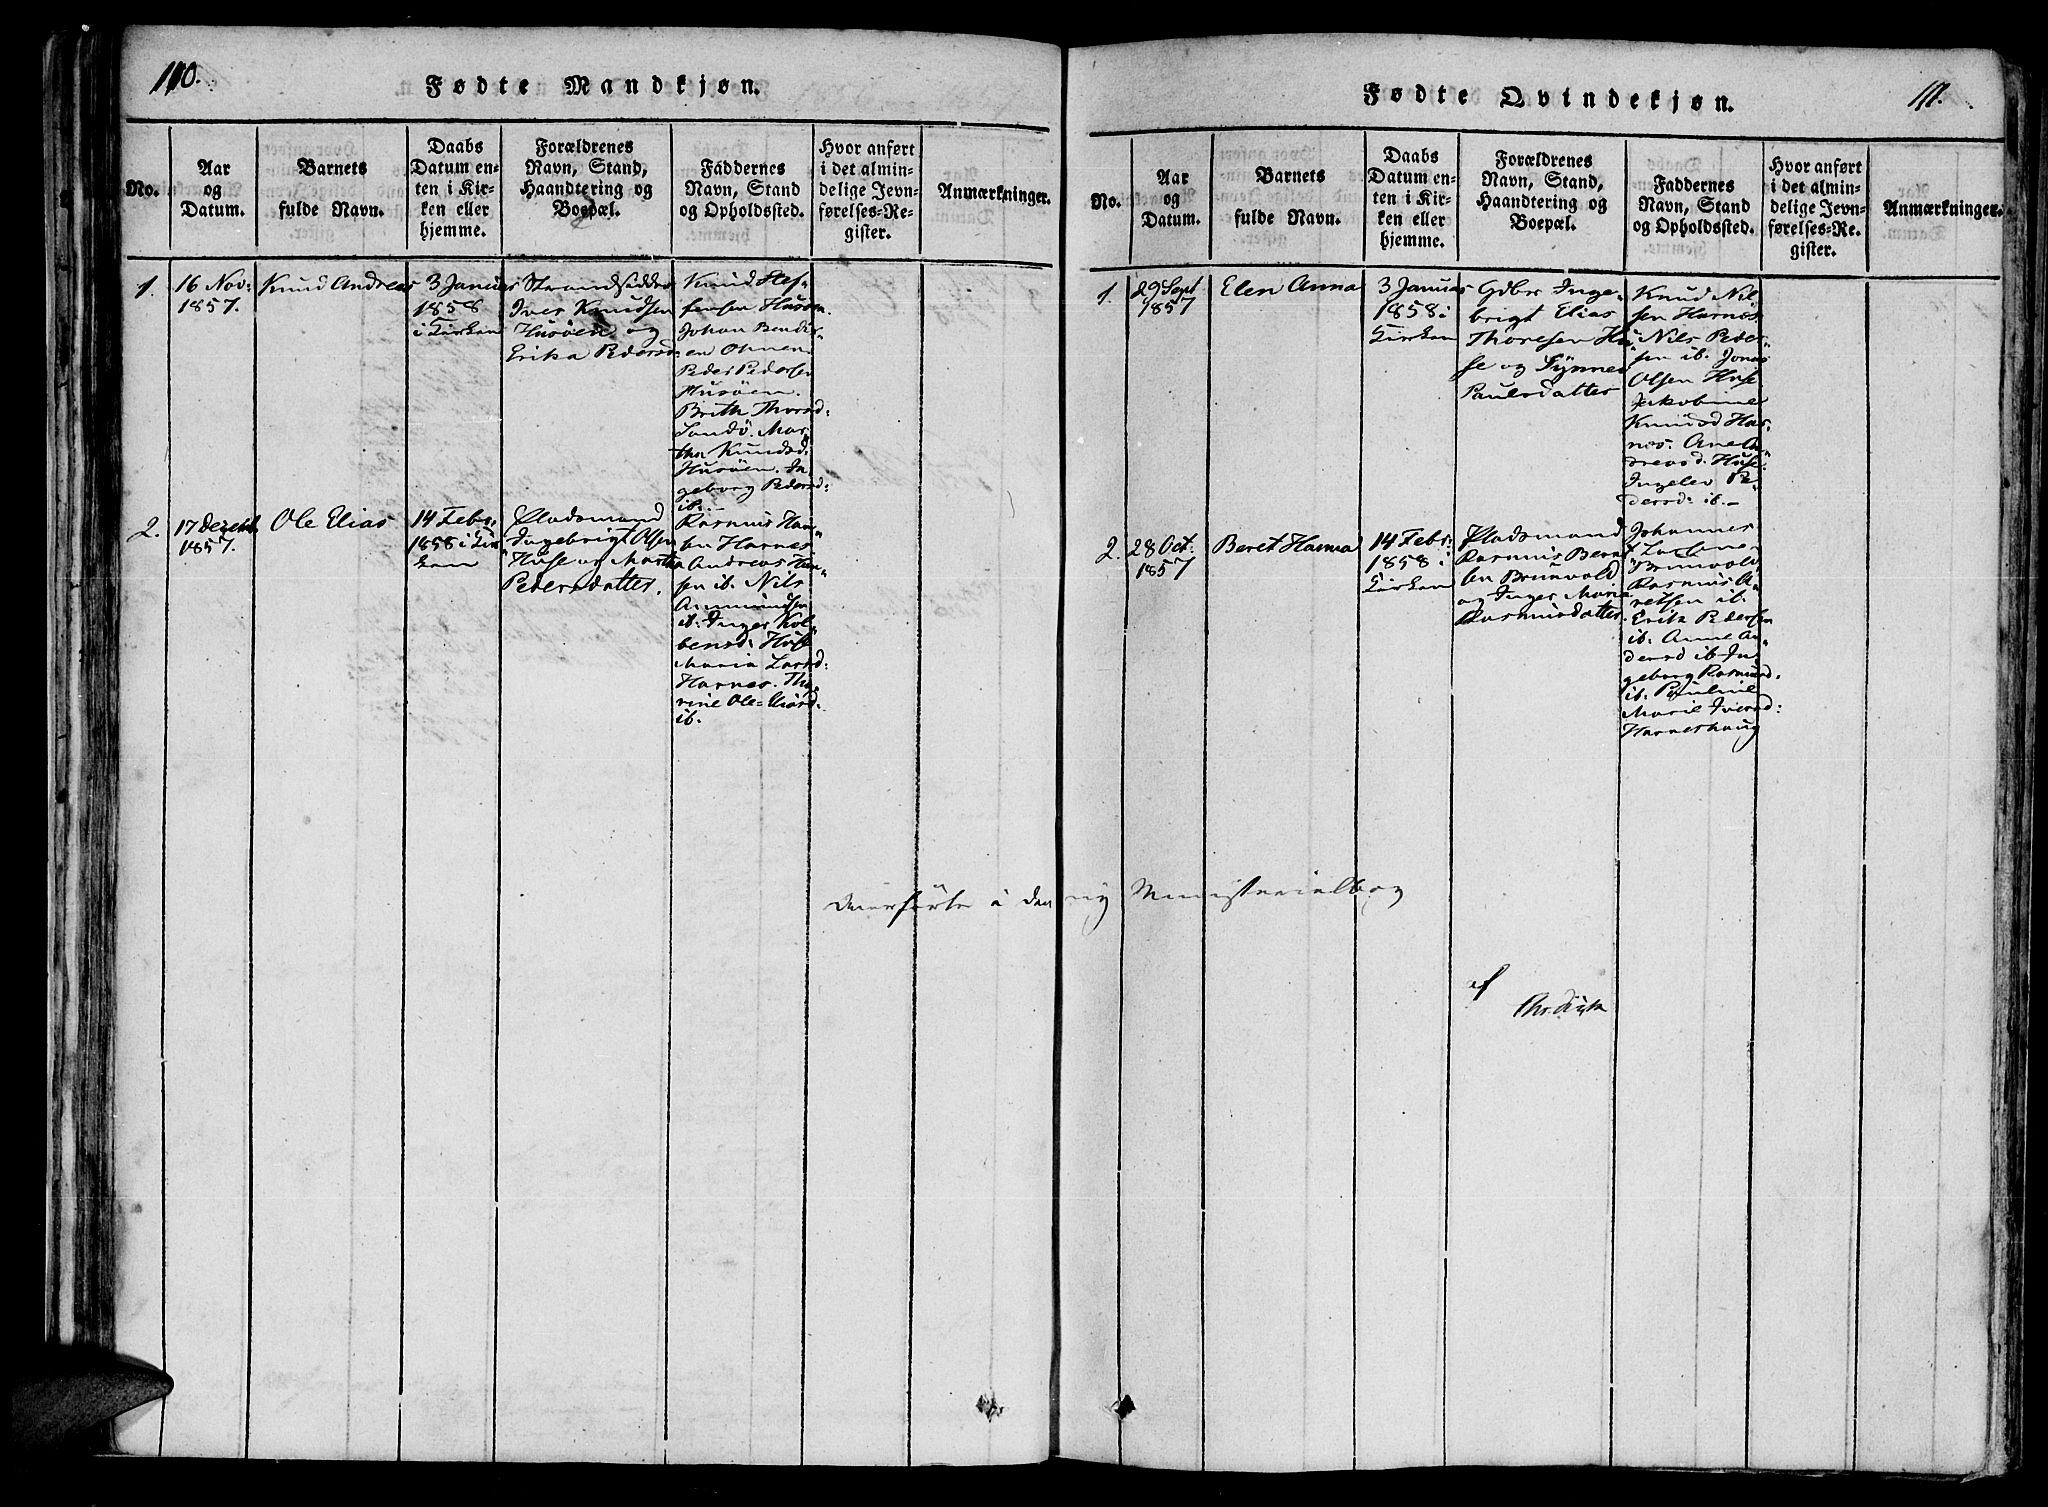 110.
Fødte Mandkjøn.
No.
Aar
og
Datum.
Barnets
fulde Navn.
Daabs
Datum en-
ten i Kir-
ken eller
hjemme.
Forældrenes
Navn, Stand,
Haandtering og
Boepæl.
Faddernes
Navn, Stand
og Opholdssted.
Hvor anført
i det almin-
delige Jevn-
førelses-Re-
gister.
Anmærkninger.
1.
16 Nov:
1857.
Knud Andreas
3 Januar
1858
i Kirken
Strandsidder
Iver Knudsen
Husöen og
Erika Pedersd:
Knud Stef-
fensen Husöen.
Johan Bendix-
en
Peder Pedersen
Husöen.
Brith Thorsd:
Sandö. Mar-
tha Knudsd:
Husöen. In-
geborg Pedersd:
ib.
2.
17 Dezemb
1857.
Ole Elias
14 Febr:
1858 i Kir
ken
Pladsmand
Ingebrigt Olsen
Huse og Martha
Pedersdatter.
Rasmus Han-
sen Harnes
Andreas Han-
sen ib. Nils
Ammundsen
ib: Inger Kol-
bensd: Huse
Maria Larsd:
Harnes. Tho-
rine Ole-Eliasd:
ib.
111.
Fødte Qvindekjøn.
No.
Aar
og
Datum.
Barnets
fulde Navn.
Daabs
Datum en-
ten i Kir-
ken eller
hjemme.
Forældrenes
Navn, Stand,
Haandtering og
Boepæl.
Faddernes
Navn, Stand
og Opholdssted.
Hvor anført
i det almin-
delige Jevn-
førelses-Re-
gister.
Anmærkninger.
1.
29 Sept
1857
Elen Anna
3 Januar
1858 i
Kirken
Gdbr Inge-
brigt Elias
Thoresen Hu-
se og Synnev
Paulsdatter
Knud Nil-
sen Harnes
Nils Peder-
sen ib. Jonas
Olsen Huse
Jakobine
Knudsd Har-
nes. Ane An-
dreasd. Huse
Ingelev Pe-
dersd: ib.-
2.
28 Oct:
1857
Beret Hanna
14 Febr:
1858 i
Kirken
Pladsmand
Rasmus Bernt
sen Brunvold
og Inger Maria
Rasmusdatter.
Johannes
Larsen
Brunvold
Rasmus A-
retsen ib.
Erik Pedersen
ib: Anne An-
dersd ib. In-
geborg Rasmusd.
ib. Pauline
Marie Iversd:
Harneshaug
Overförte i den ny Ministerialbog
af